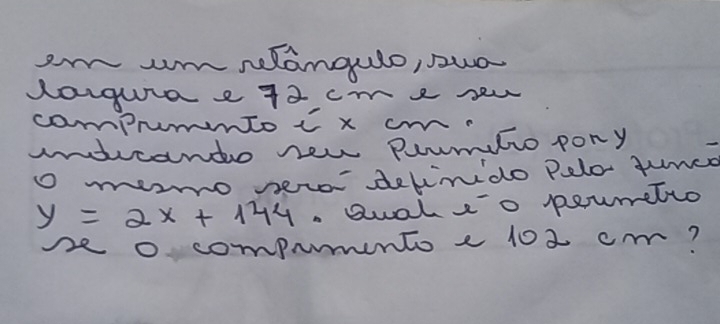 em um retângulo, sua
largura e 72 cm e seu
comprimento é x cm.
indicando seu Perimetro por y
o mesmo será definido Pela funcã
y = 2x + 144. Qual é o perimetro
se o comprimento e 102 cm?